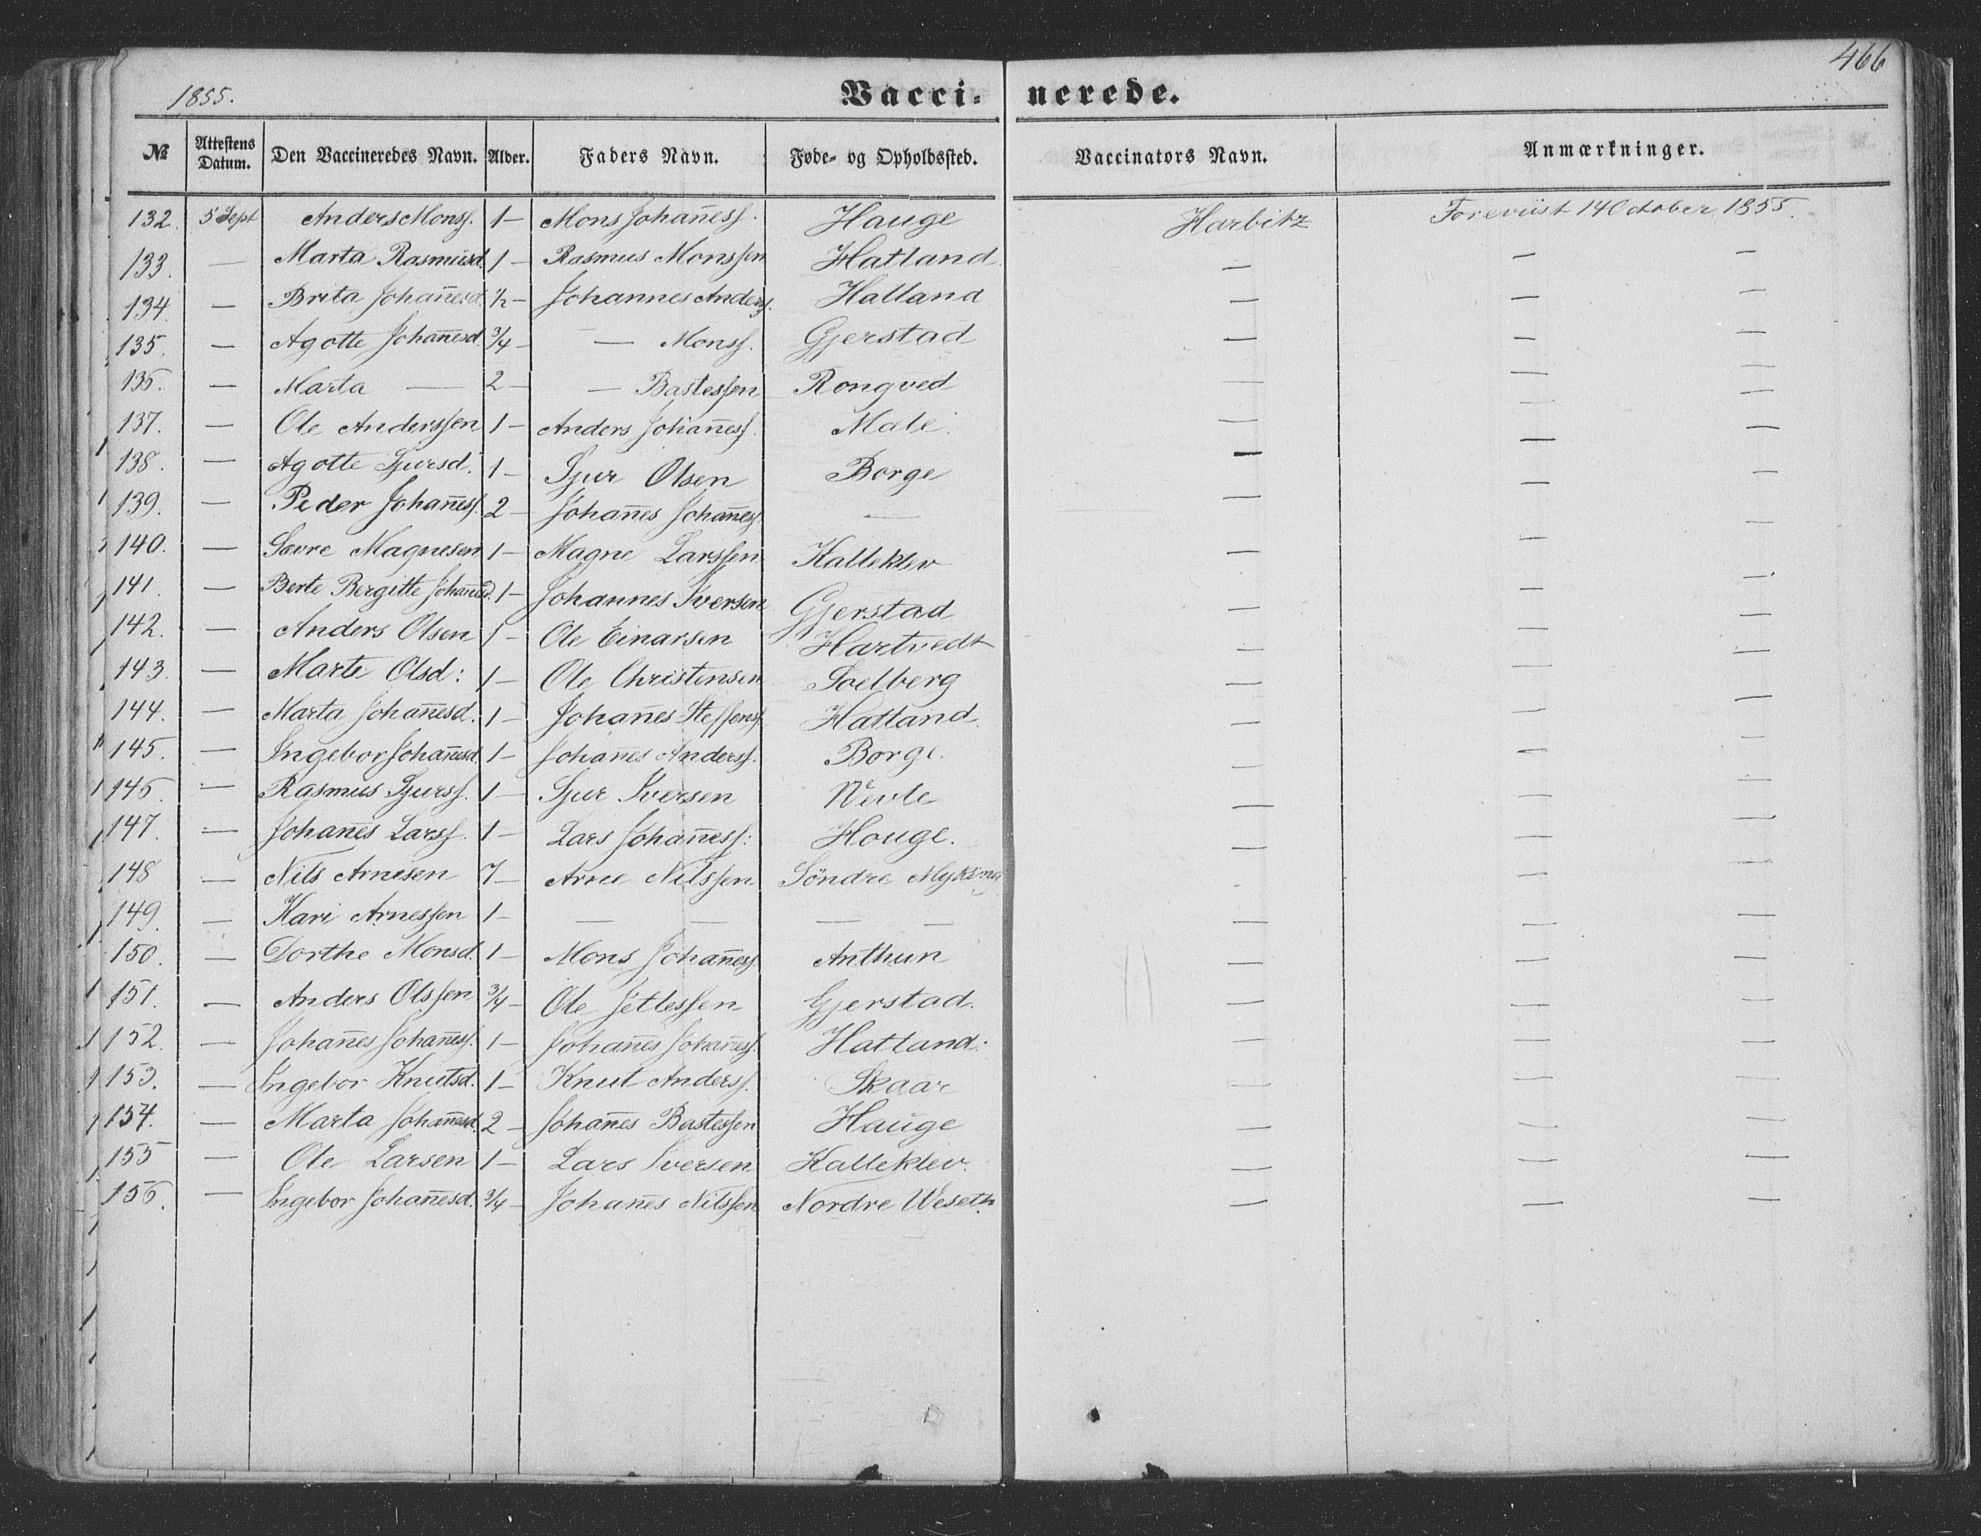 466
1855. Vacci- nerede.
№ Attestens Datum. Den Vaccineredes Navn. Alder. Faders Navn. Føde- og Opholdssted. Vaccinators Navn. Anmærkninger.
132. 5 Sept Anders Monss. 1 — Mons Johan̄ess. Hauge Harbitz Foreviist 14 October 1855.
133. — Marta Rasmusd. 1 — Rasmus Monssen Hatland — — —
134. — Brita Johan̄esd. ½ — Johannes Anderss. Hatland — — —
135. — Agotte Johan̄esd. ¾ — — Monss. Gjerstad — — —
136. — Marta — 2 — — Bastessen Rongved — — —
137. — Ole Anderssen 1 — Anders Johan̄ess. Male — — —
138. — Agotte Sjursd. 1 — Sjur Olsen Borge — — —
139. — Peder Johan̄ess. 2 — Johan̄es Johan̄ess. — — — —
140. — Sævre Magnesen 1 — Magne Larssen Kalleklev — — —
141. — Berte Bergitte Johan̄esd. 1 — Johannes Iversen Gjerstad — — —
142. — Anders Olsen 1 — Ole Einarsen Hartvedt — — —
143. — Marte Olsd: 1 — Ole Christensen Soelberg — — —
144. — Marta Johan̄esd. 1 — Johan̄es Steffenss. Hatland. — — —
145. — Ingebor Johan̄esd. 1 — Johan̄es Anderss. Borge. — — —
146. — Rasmus Sjurss. 1 — Sjur Iversen Nevle — — —
147. — Johan̄es Larss. 1 — Lars Johan̄ess: Houge. — — —
148 — Nils Arnesen 7 — Arne Nilssen Søndre Myking — — —
149. — Kari Arnessen 1 — — — — — — — —
150. — Dorthe Monsd. 1 — Mons Johan̄ess. Anthun — — —
151. — Anders Olssen ¾ — Ole Jetlessen Gjerstad. — — —
152. — Johan̄es Johan̄ess. 1 — Johan̄es Johan̄ess. Hatland. — — —
153. — Ingebor Knutsd. 1 — Knut Anderss. Skaar — — —
154. — Marta Johan̄esd. 2 — Johan̄es Bastessen Hauge — — —
155 — Ole Larsen 1 — Lars Iversen Kalleklev. — — —
156. — Ingebor Johan̄esd. ¾ — Johan̄es Nilssen Nordre Weseth — — —